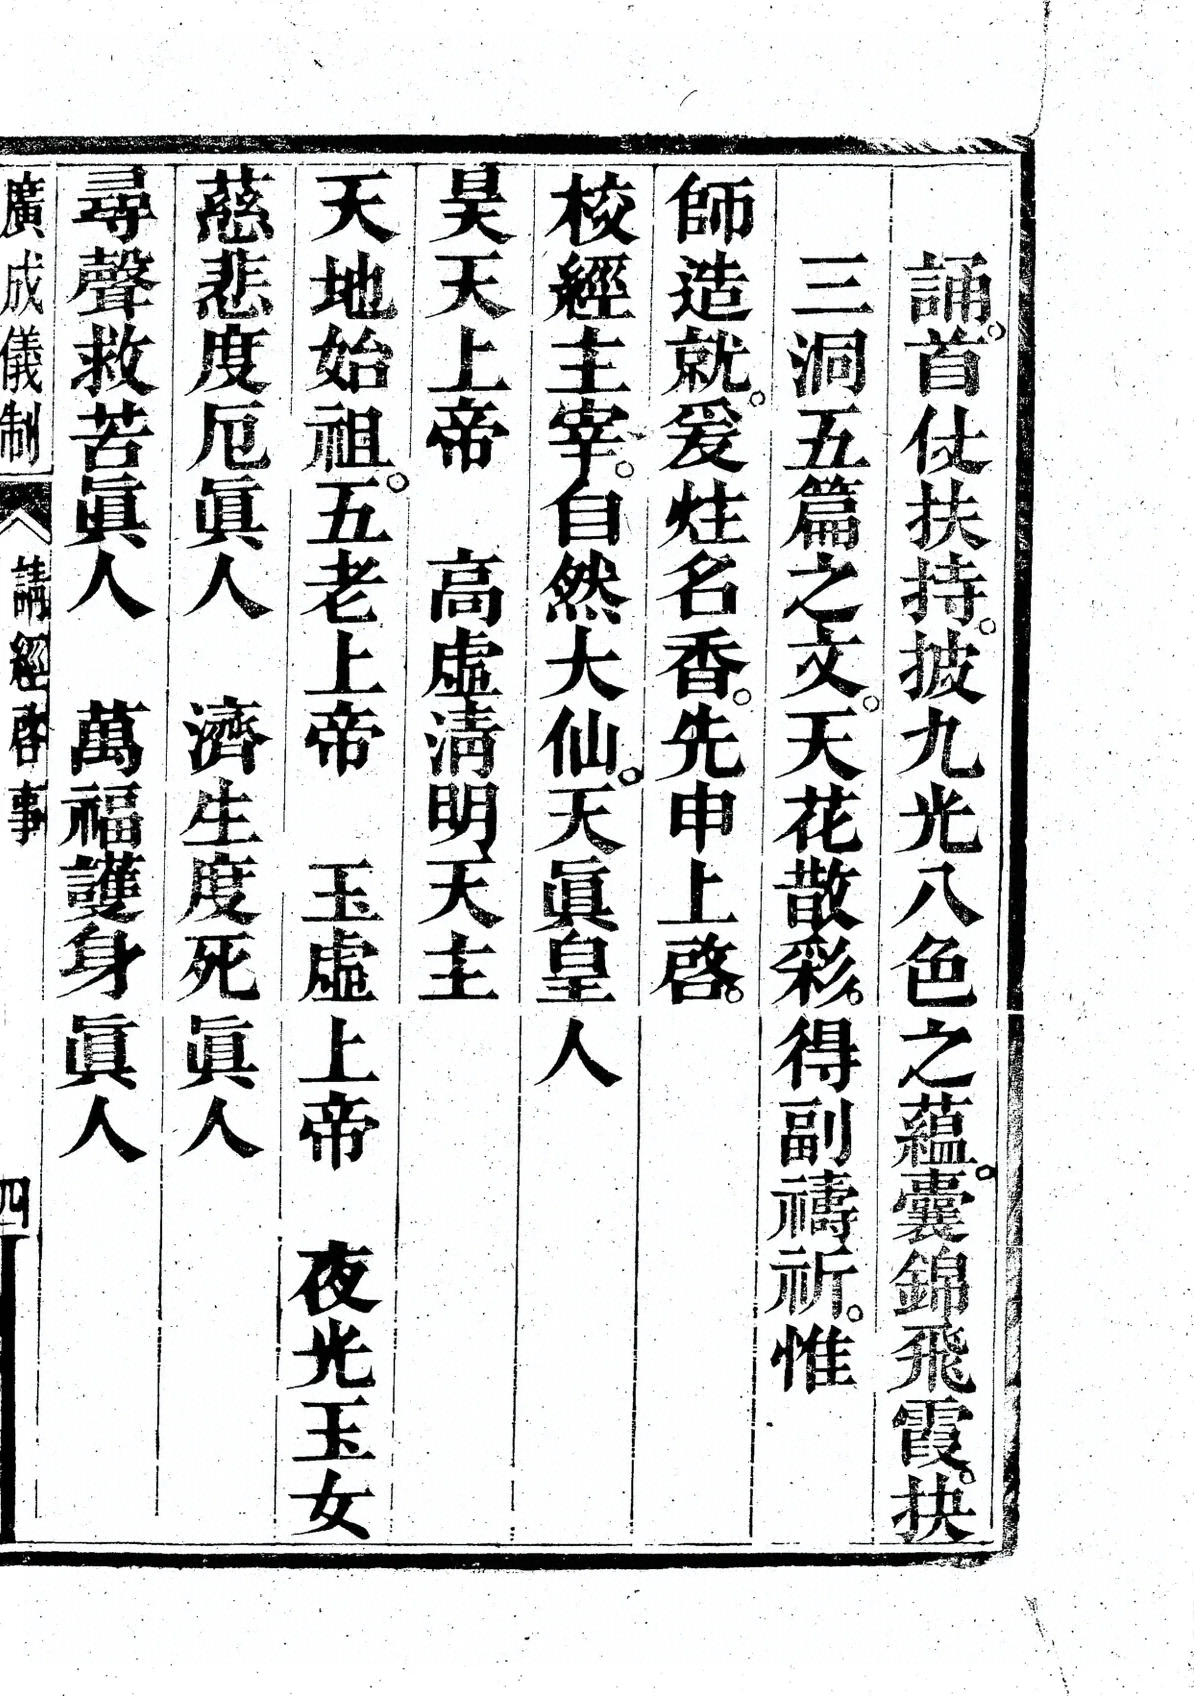 誦。首仗扶持。披九光八色之蘊。囊錦飛霞。抉
三洞五篇之文。天花散彩。得副禱祈。惟
師造就。爰炷名香。先申上啓。
校經主宰。自然大仙。天眞皇人
昊天上帝　高虛淸明天主
天地始祖。五老上帝　玉虛上帝　夜光玉女
慈悲度厄眞人　濟生度死眞人
尋聲救苦眞人　萬福護身眞人
廣成儀制　請經啓事　四